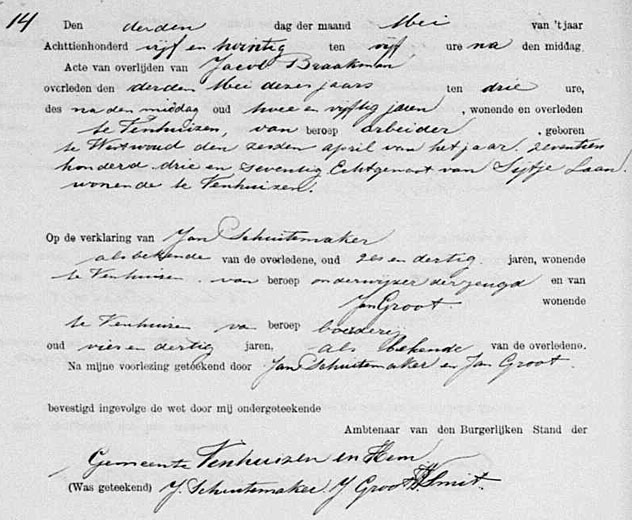 14 Den derden dag der maand Mei van 't jaar
Achttienhonderd vijf en twintig ten vijf ure na den middag.
Acte van overlijden van Jacob Braakman
overleden den derden Mei dezes jaars ten drie ure,
des na den middag oud twee en vijftig jaren, wonende en overleden
te Venhuizen, van beroep arbeider, geboren
te Westwoud den zesden april van het jaar zeventien
honderd drie en seventig Echtgenoot van Sijtje Laan.
wonende te Venhuizen.
Op de verklaring van Jan Schuitemaker
als bekende van de overledene, oud zes en dertig jaren, wonende
te Venhuizen van beroep onderwijzer der jeugd en van
Jan Groot. wonende
te Venhuizen va beroep boerderij
oud vier en dertig jaren, als bekende van de overledene.
Na mijne voorlezing geteekend door Jan Schuitemaker en Jan Groot.
bevestigd ingevolge de wet door mij ondergeteekende
Ambtenaar van den Burgerlijken Stand der
Gemeente Venhuizen en Hem
(Was geteekend) J. Schuitemaker. J Groot. Smit.